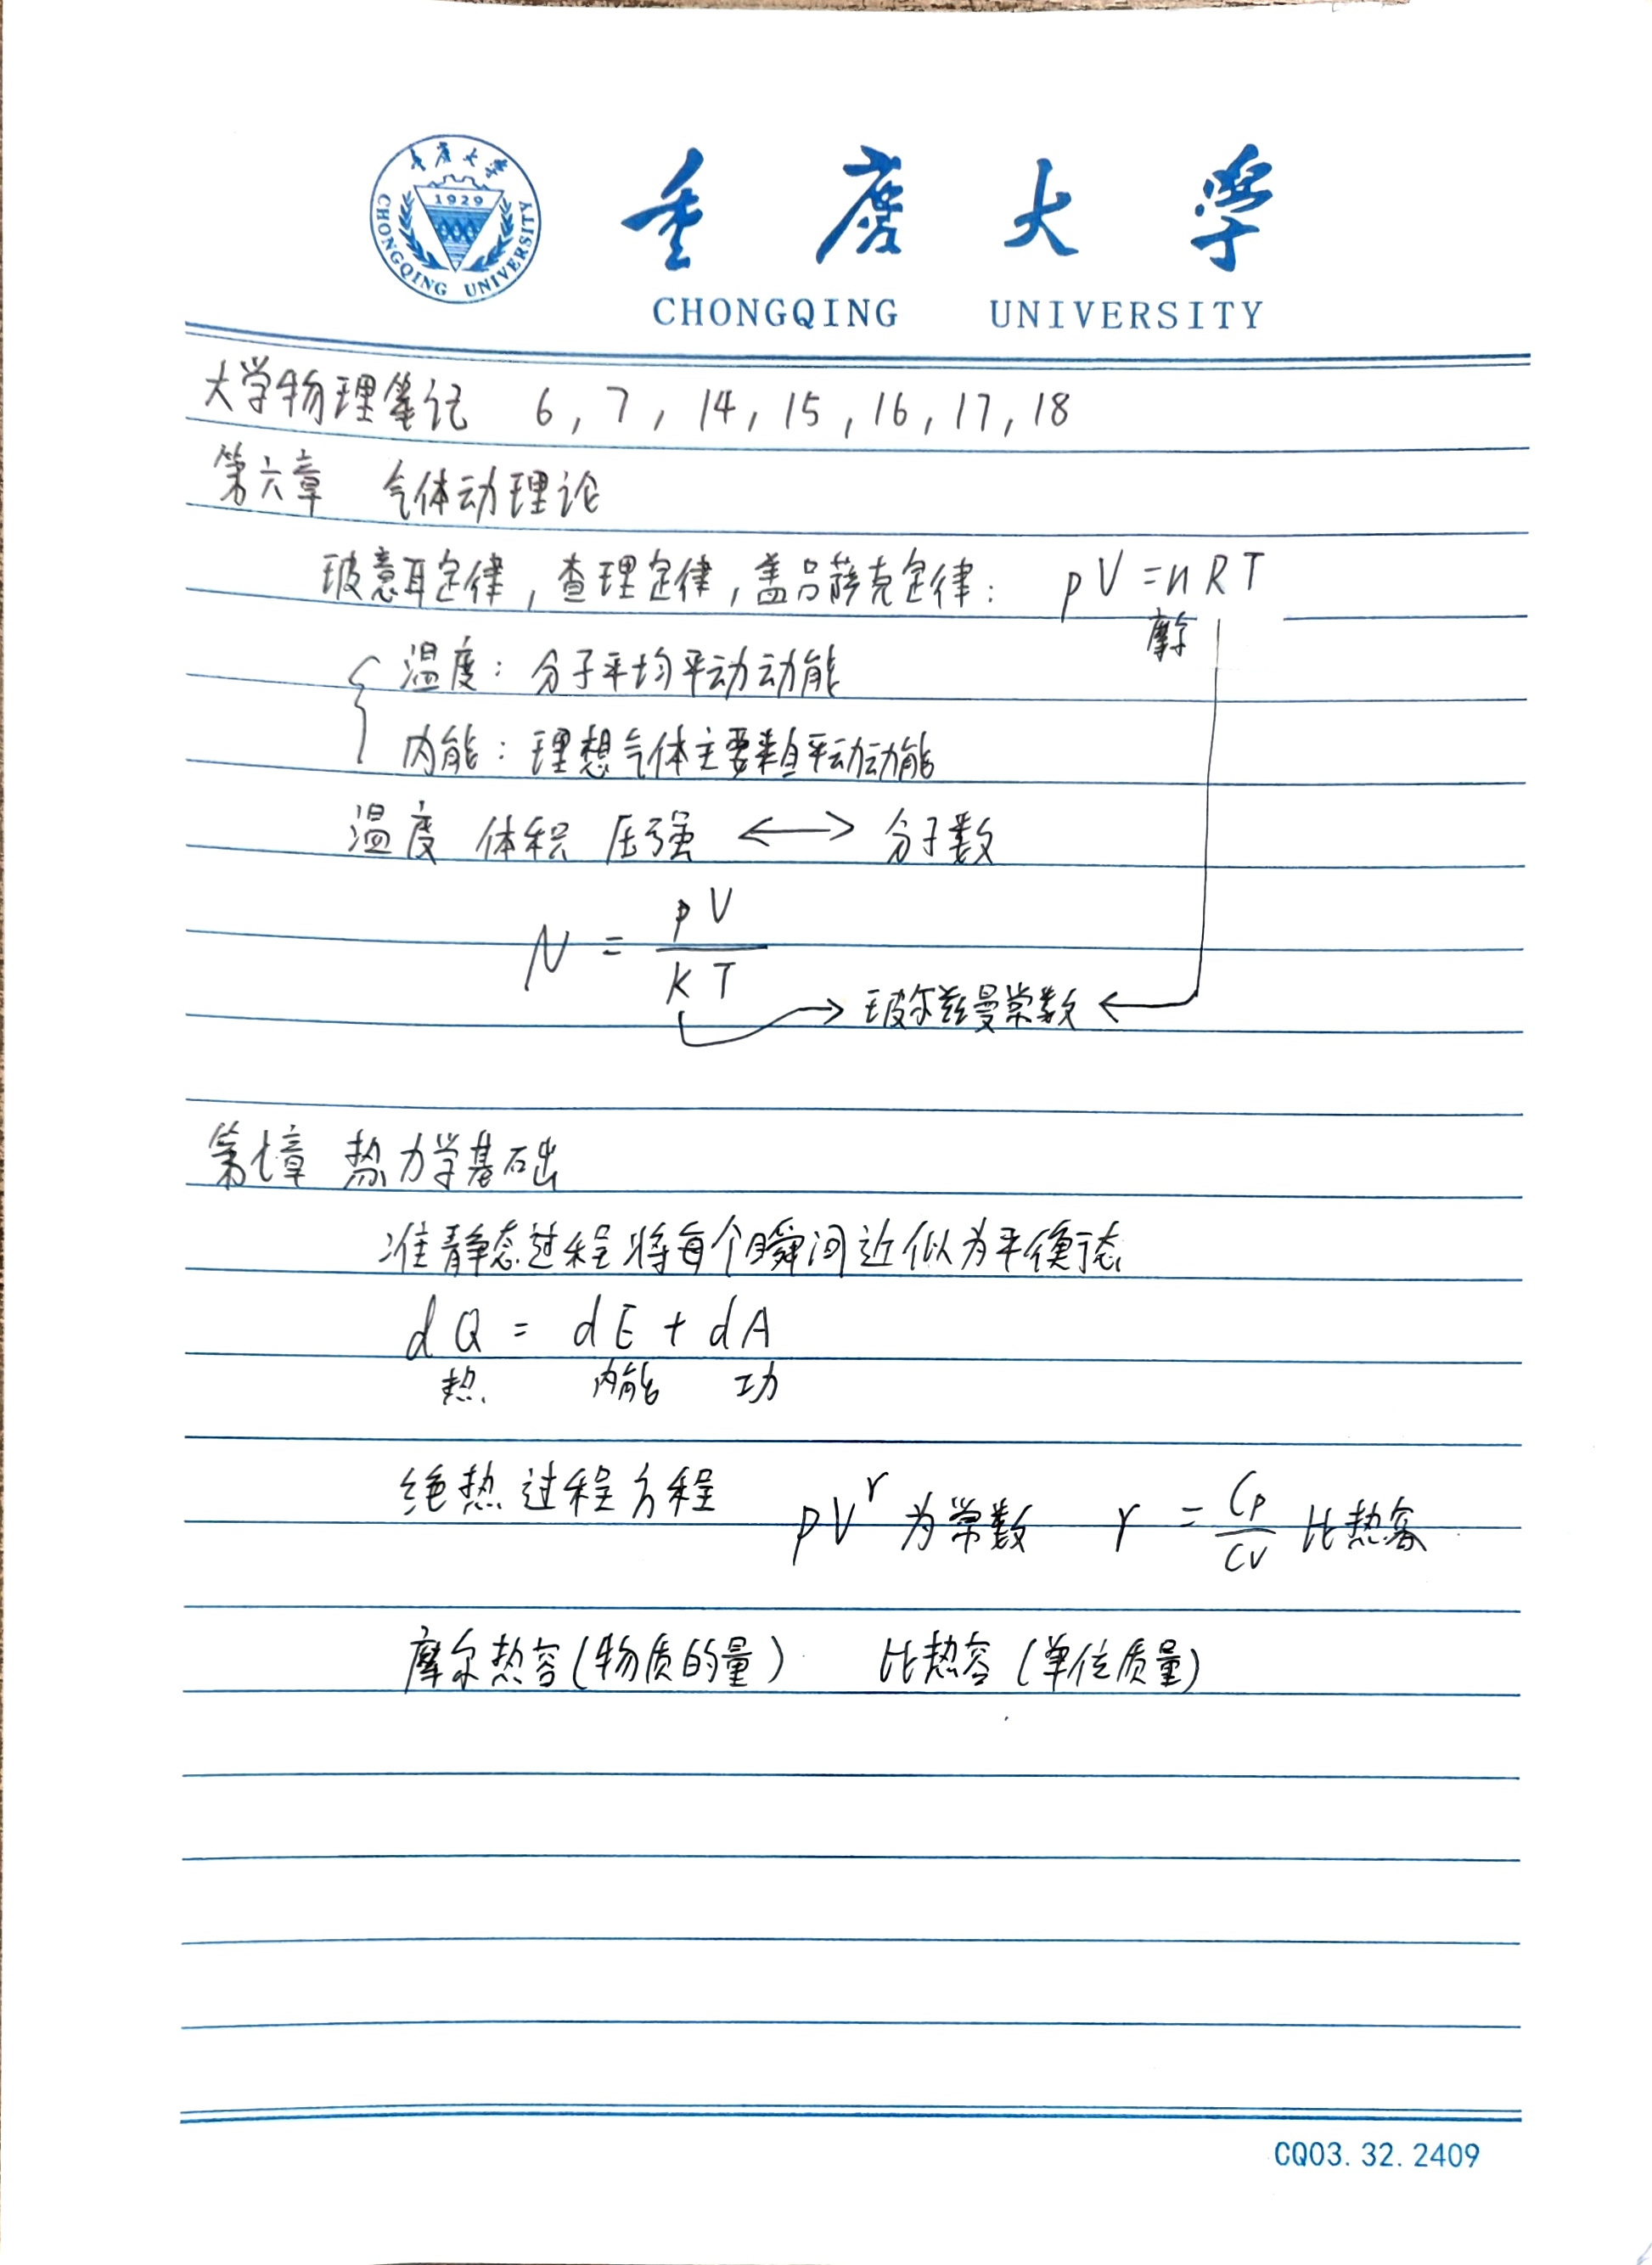 重庆大学
1929
CHONGQING UNIVERSITY
重庆大学
CHONGQING UNIVERSITY
大学物理笔记 6, 7, 14, 15, 16, 17, 18
第六章 气体动理论
玻意耳定律, 查理定律, 盖吕萨克定律: pV=nRT
摩尔
温度: 分子平均平动动能
内能: 理想气体主要来自平动动能
温度 体积 压强 ⟷ 分子数
N = pV/kT
→ 玻尔兹曼常数 ←
第七章 热力学基础
准静态过程将每个瞬间近似为平衡态
dQ = dE + dA
热 内能 功
绝热过程方程 pV^γ 为常数 γ = Cp/CV 比热容
摩尔热容(物质的量) 比热容(单位质量)
CQ03.32.2409